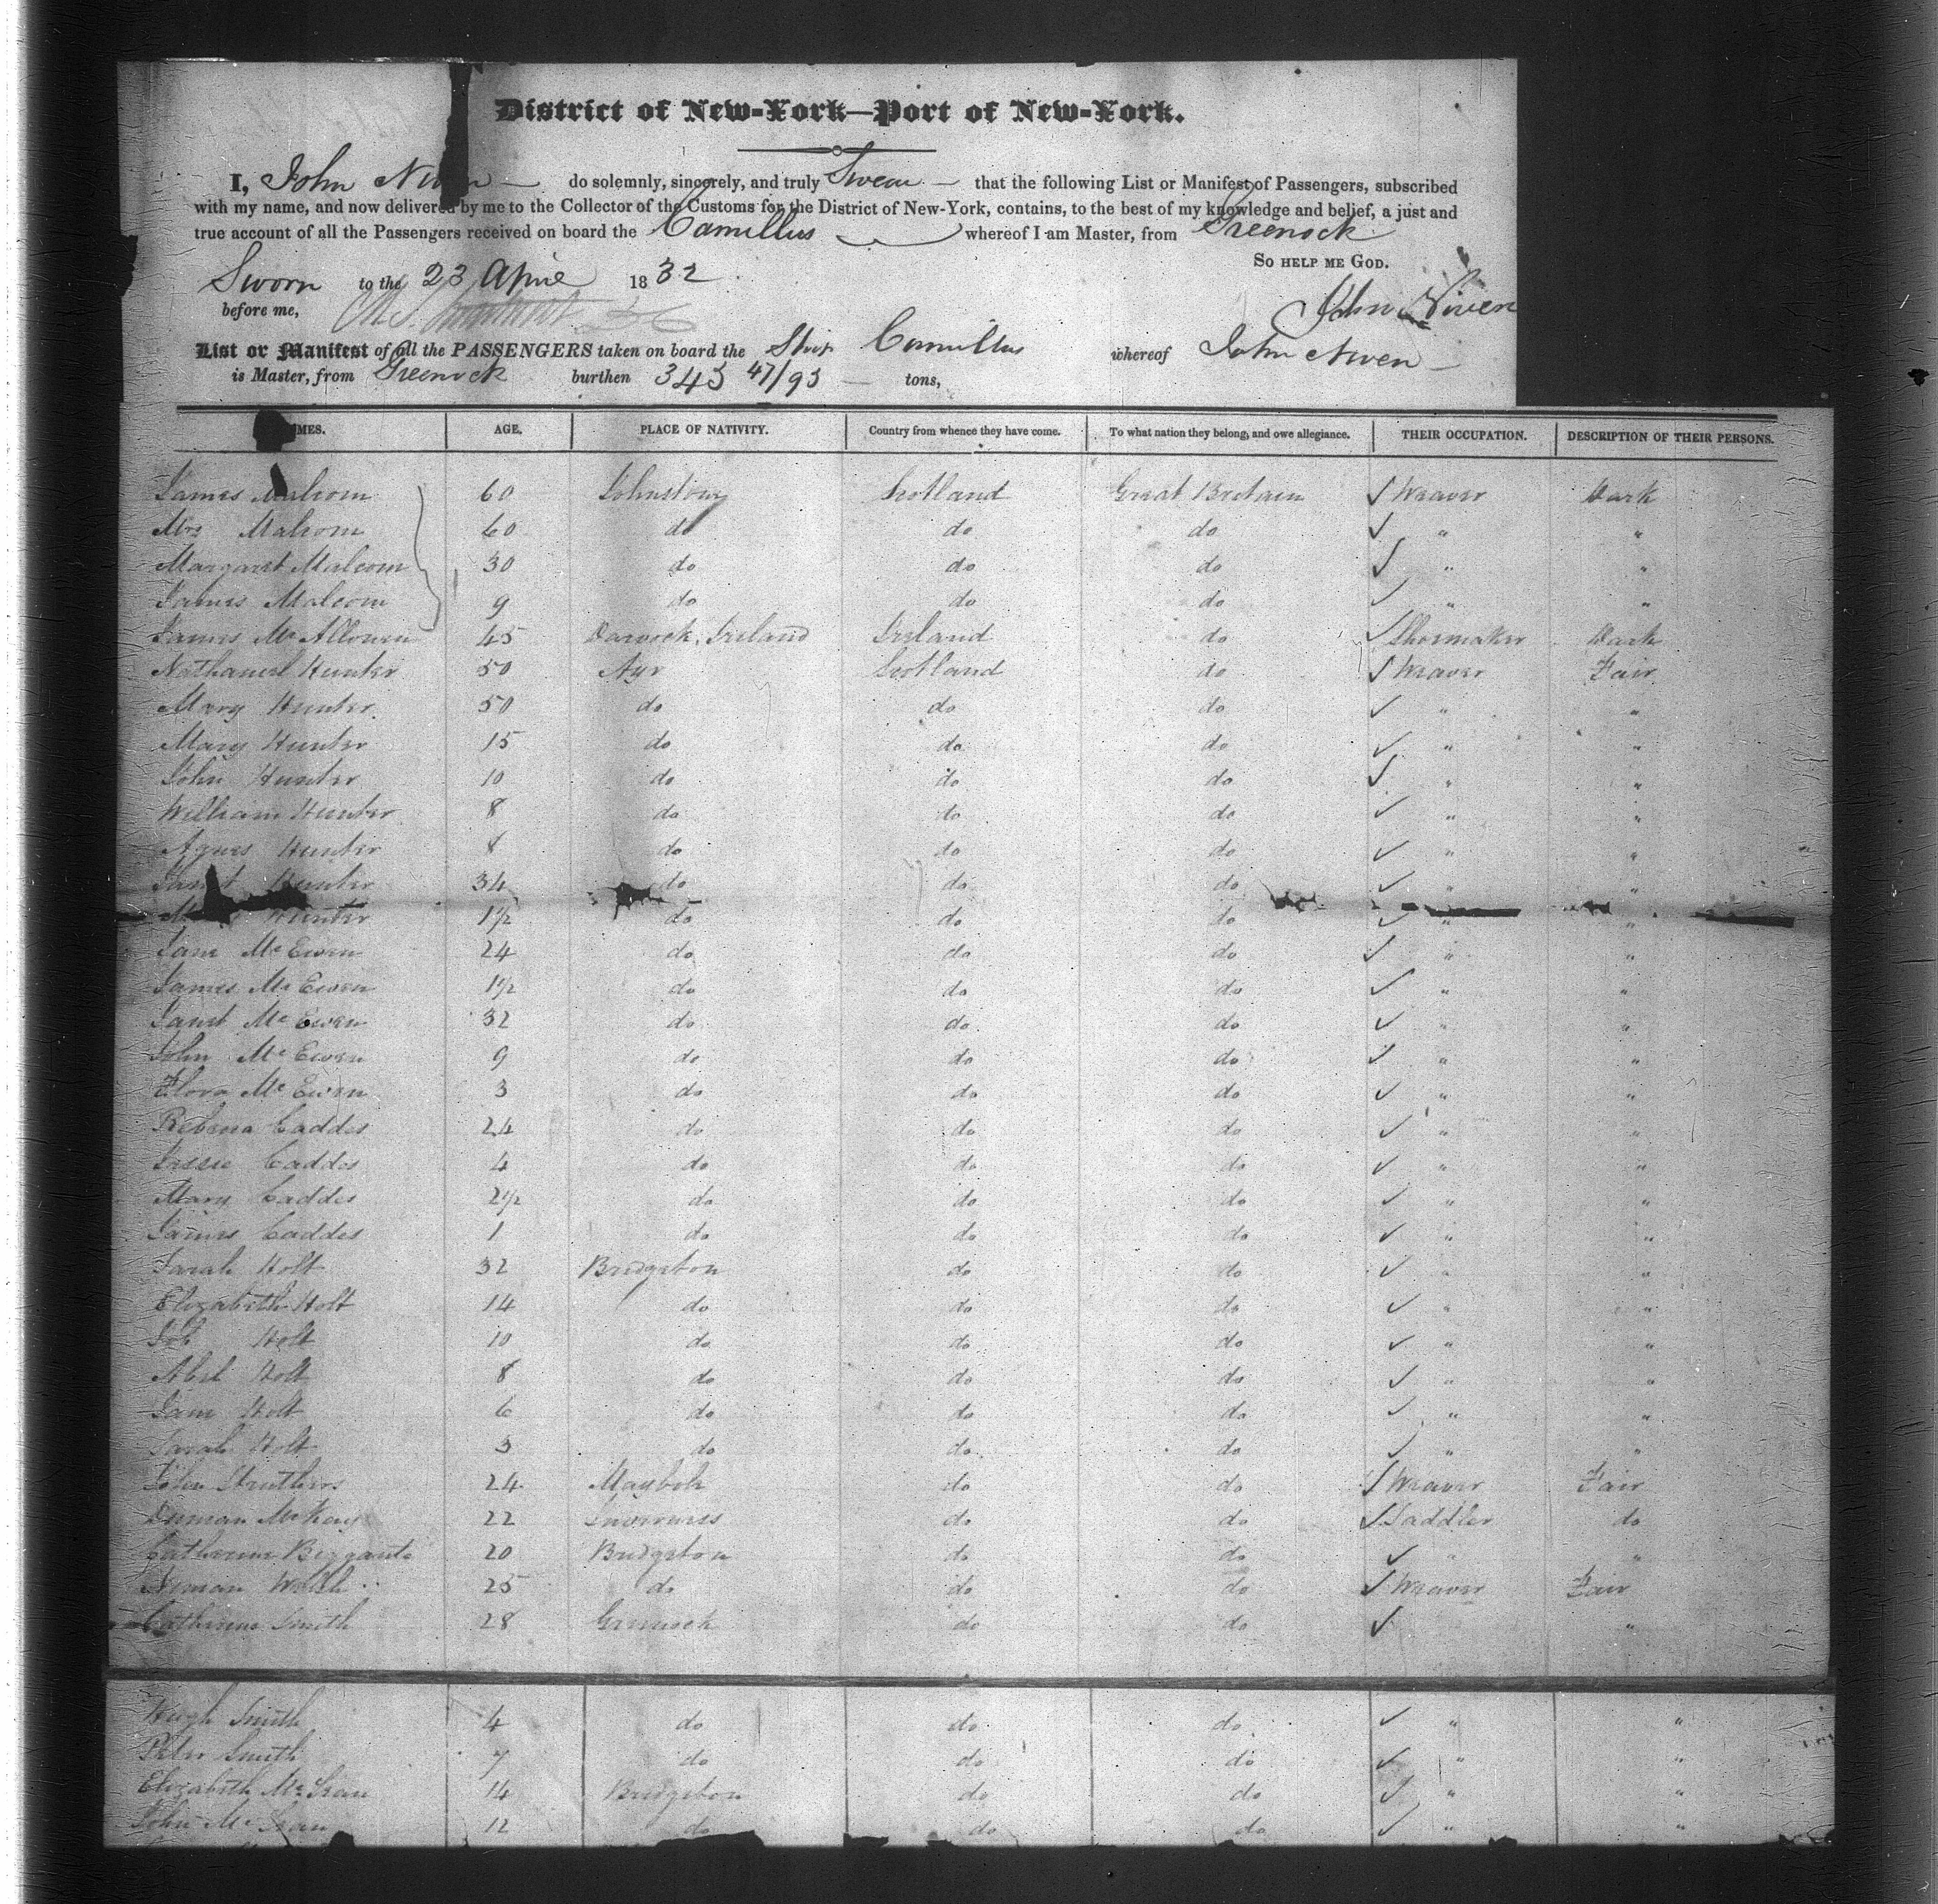 District of New-York—Port of New-York.
I, John Niven do solemnly, sincerely, and truly Swear that the following List or Manifest of Passengers, subscribed
with my name, and now delivered by me to the Collector of the Customs for the District of New-York, contains, to the best of my knowledge and belief, a just and
true account of all the Passengers received on board the Camillus whereof I am Master, from Greenock
So help me God.
Sworn to the 23 April 1832
before me,
John Niven
List or Manifest of all the PASSENGERS taken on board the Ship Camillus whereof John Niven
is Master, from Greenock burthen 343 47/93 tons,
MES. AGE. PLACE OF NATIVITY. Country from whence they have come. To what nation they belong, and owe allegiance. THEIR OCCUPATION. DESCRIPTION OF THEIR PERSONS.
James Malcom 60 Johnstown Scotland Great Britain Weaver Dark
Mrs Malcom 60 do do do " "
Margaret Malcom 30 do do do " "
James Malcom 9 do do do " "
James 45 Ireland Ireland do Shoemaker Dark
Nathaniel Hunter 50 Ayr Scotland do Weaver Fair
Mary Hunter 50 do do do " "
Mary Hunter 15 do do do " "
John Hunter 10 do do do " "
William Hunter 8 do do do " "
Agnes Hunter 8 do do do " "
Janet Hunter 34 do do do " "
Hunter 1½ do do do " "
Jane McEwen 24 do do do " "
James McEwen 1½ do do do " "
Janet McEwen 32 do do do " "
John McEwen 9 do do do " "
Flora McEwen 3 do do do " "
Rebecca Caddes 24 do do do " "
Jessie Caddes 4 do do do " "
Mary Caddes 2½ do do do " "
James Caddes 1 do do do " "
Sarah Holt 32 Bridgeton do do " "
Elizabeth Holt 14 do do do " "
Job Holt 10 do do do " "
Abel Holt 8 do do do " "
Jane Holt 6 do do do " "
Sarah Holt 3 do do do " "
John Struthers 24 Maybole do do Weaver Fair
Duncan McKay 22 Inverness do do Saddler do
Catherine 20 Bridgeton do do " "
25 do do do Weaver Fair
Catherine Smith 28 Greenock do do "
Hugh Smith 4 do do do " "
Peter Smith 7 do do do " "
Elizabeth McLean 14 Bridgeton do do " "
John McLean 12 do do do " "